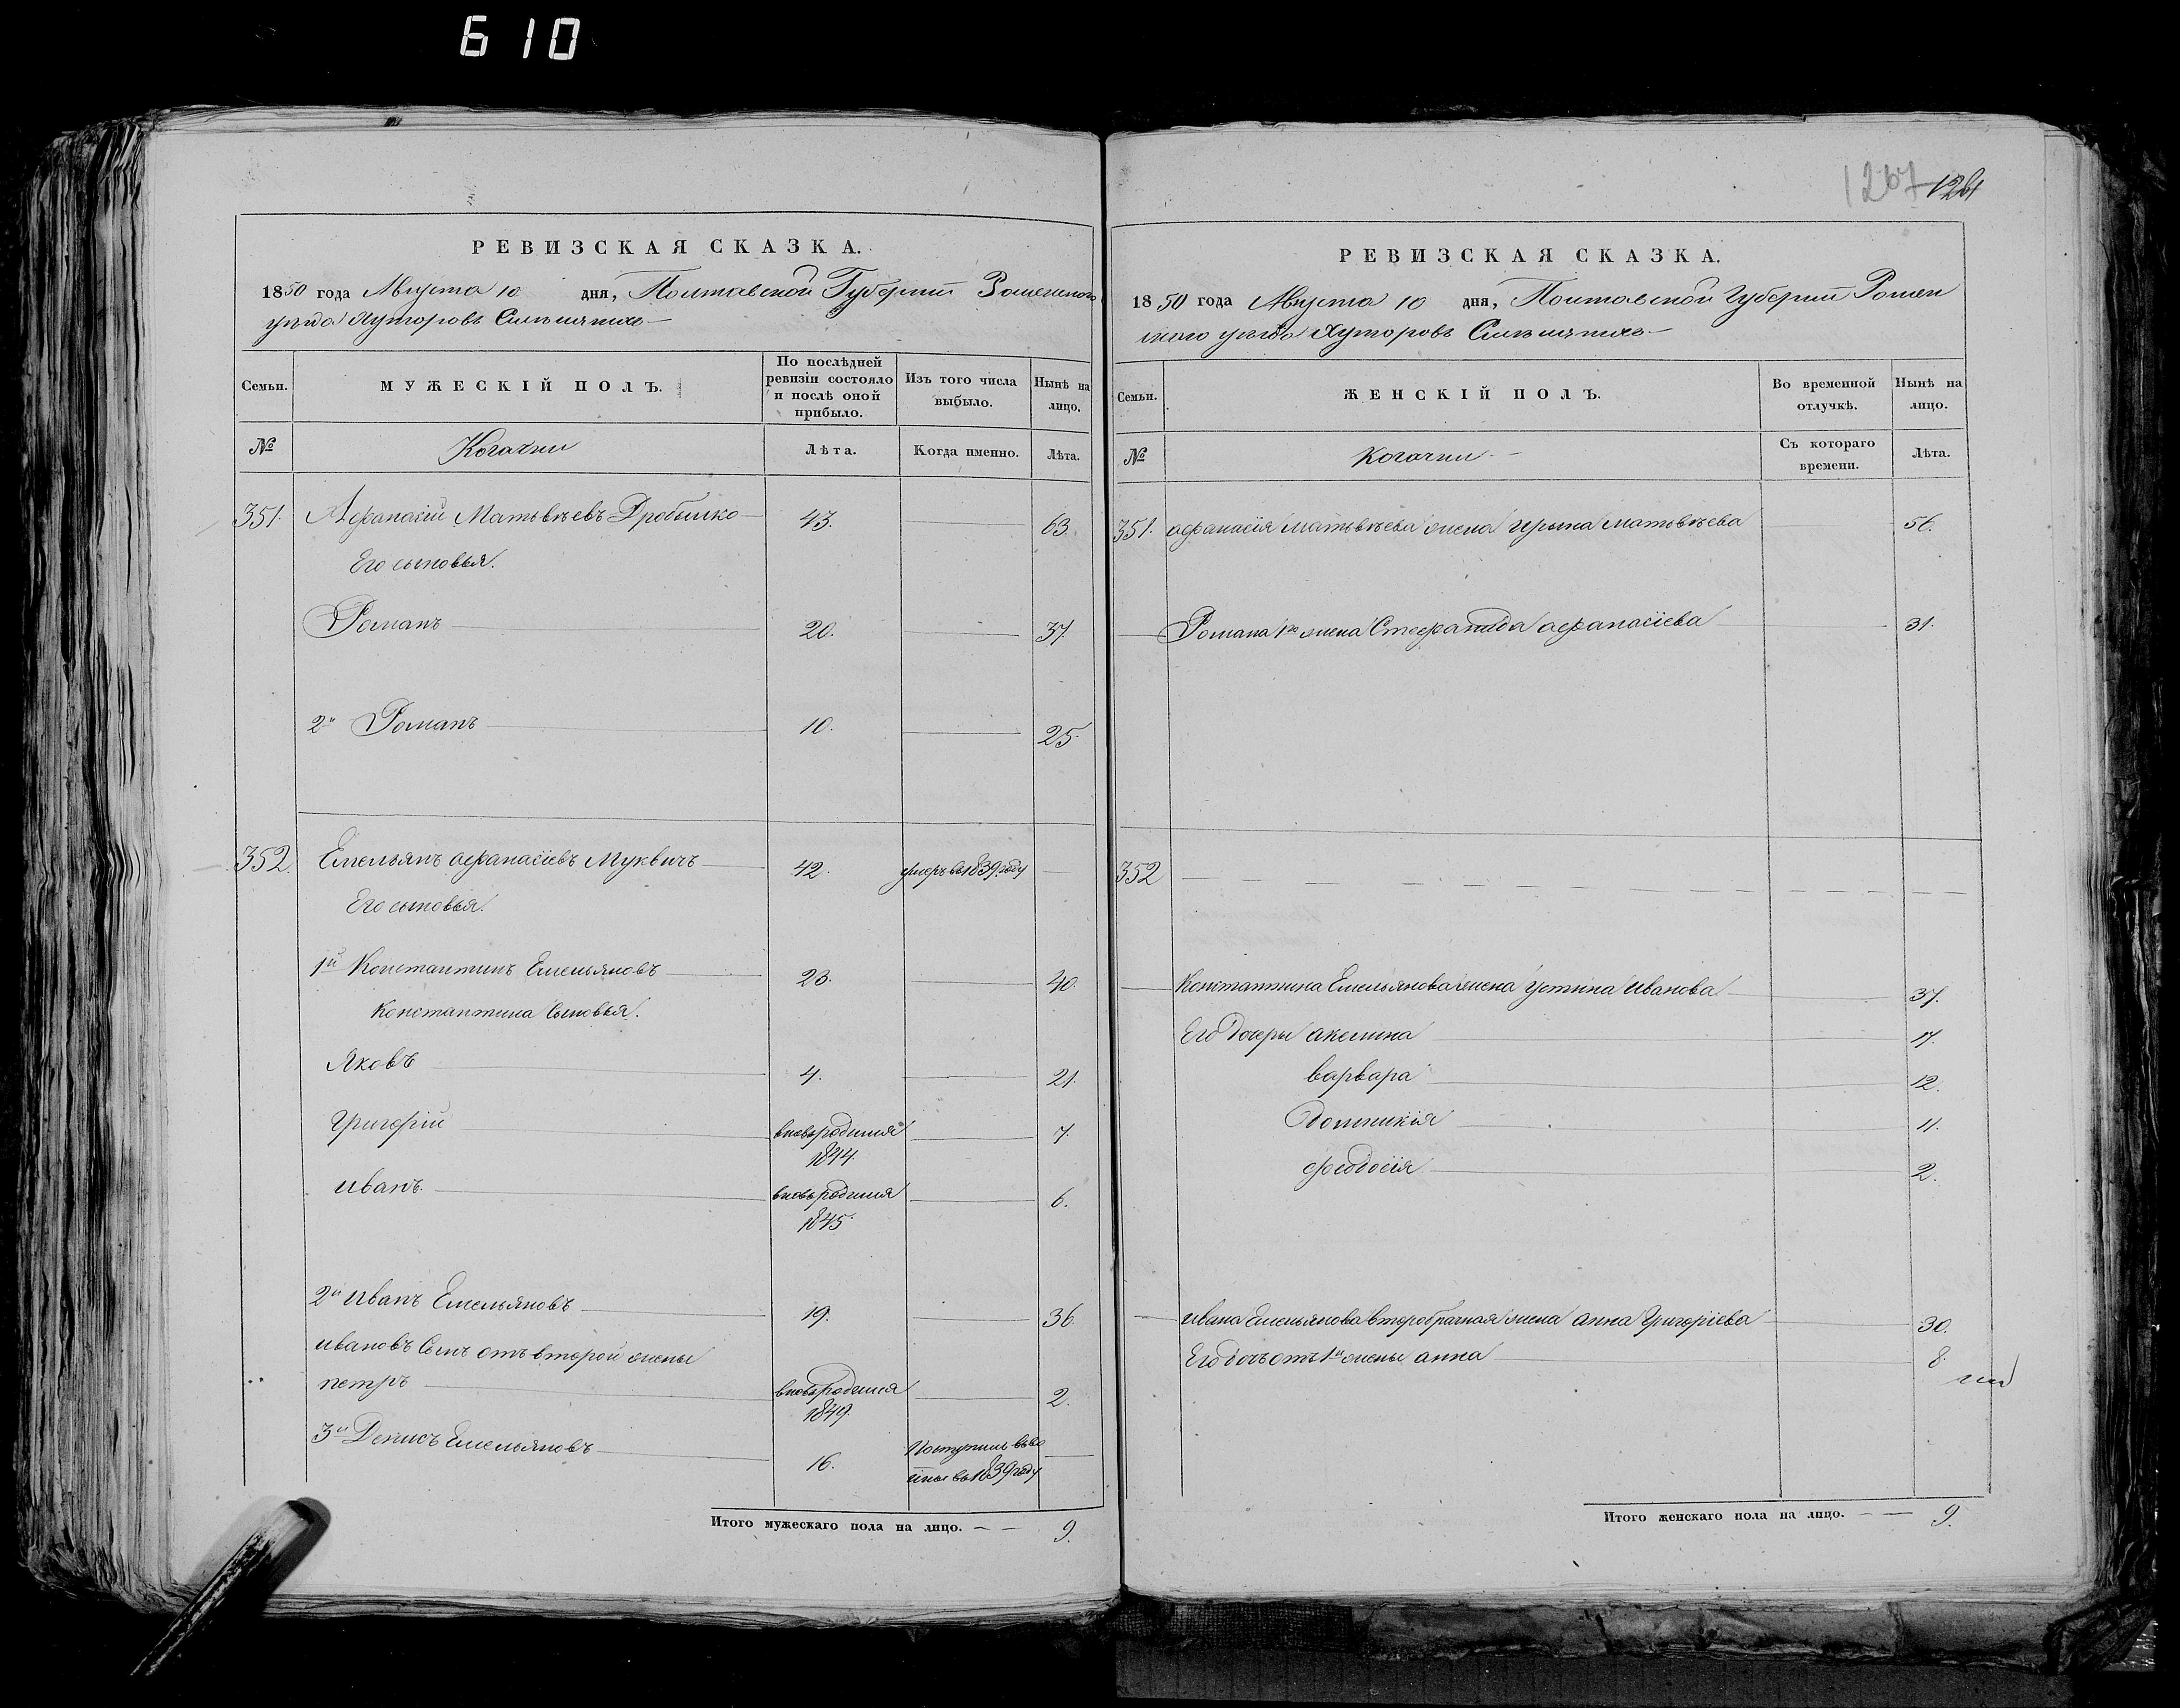 610
1267 1261
РЕВИЗСКАЯ СКАЗКА.
1850 года Августа 10 дня, Полтавской Губернии Роменского
уезда Хуторовъ
Семьи.
МУЖЕСКІЙ ПОЛЪ.
По послѣдней ревизіи состояло и послѣ оной прибыло.
Изъ того числа выбыло.
Нынѣ на лицо.
№
Козачіи
Лѣта.
Когда именно.
Лѣта.
351. Афанасій Матвѣевъ 43. 63.
Его сыновья.
Романъ 20. 37
2й Романъ 10. 25.
352. Емельянъ Афанасіевъ Муквичъ 42. умеръ въ 1839 году
Его сыновья.
1й Константинъ Емельяновъ 23. 40.
Константина сыновья.
Яковъ 4. 21.
Григорій вновьродился 1844 7.
иванъ. вновьродился 1845. 6.
2й Иванъ Емельяновъ 19. 36.
ивановъ Сынъ отъ второй жены
петръ вновьродился 1849. 2.
3й Денисъ Емельяновъ 16. Поступилъ въ 1839 году
Итого мужескаго пола на лицо. 9.
РЕВИЗСКАЯ СКАЗКА.
1850 года Августа 10 дня, Полтавской Губерніи Ромен
ского уезда Хуторовъ
Семьи.
ЖЕНСКІЙ ПОЛЪ.
Во временной отлучкѣ.
Нынѣ на лицо.
№
Козачіи
Съ котораго времени.
Лѣта.
351. афанасія матвѣева жена Ирына матвѣева 56.
Романа 1го жена Стефанида афанасіева 31.
352
Константина Емельянова жена Устина Иванова 37.
Его дочеры акелина 17.
варвара 12.
домникія 11.
феодосія 2.
ивана Емельянова второбрачная жена анна Григоріева 30.
Его дочь отъ 1й жены анна 8.
Итого женскаго пола на лицо. 9.